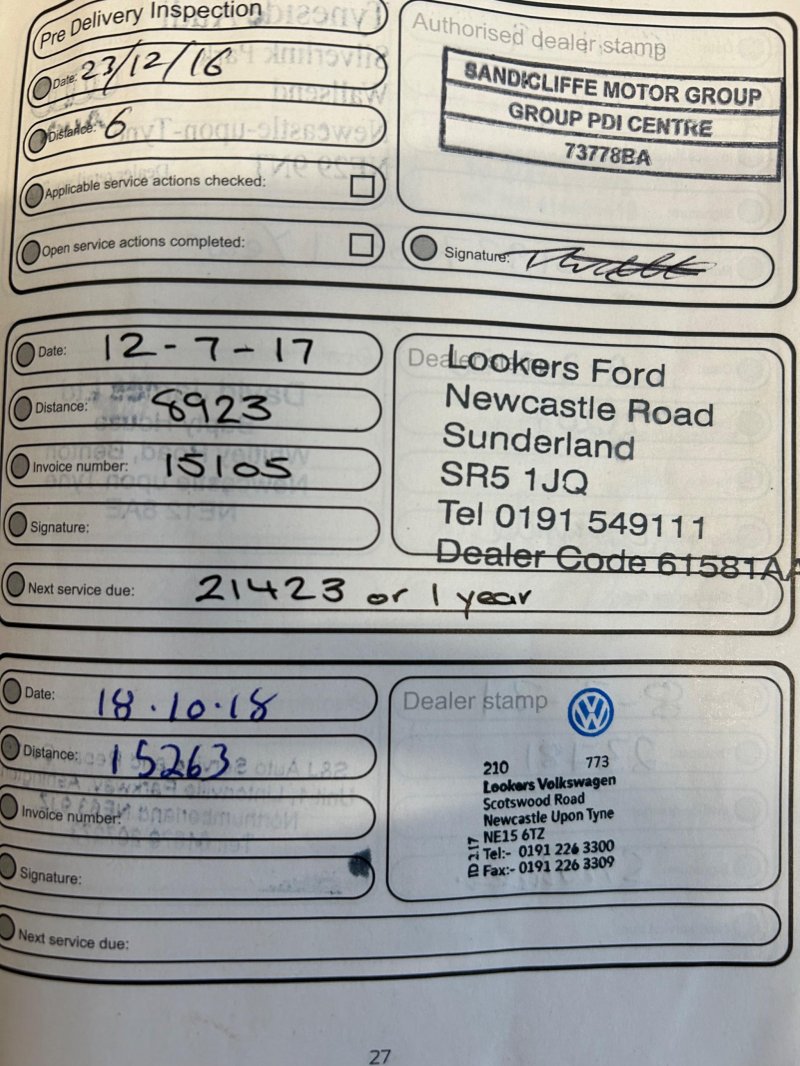 Pre Delivery Inspection
Date: 23/12/16
Distance: 6
Applicable service actions checked:
Open service actions completed:
Authorised dealer stamp
SANDICLIFFE MOTOR GROUP
GROUP PDI CENTRE
73778BA
Signature:
Date: 12-7-17
Distance: 8923
Invoice number: 15105
Signature:
Next service due: 21423 or 1 year
Dealer stamp
Lookers Ford
Newcastle Road
Sunderland
SR5 1JQ
Tel 0191 549111
Dealer Code 61581AA
Date: 18.10.18
Distance: 15263
Invoice number:
Signature:
Next service due:
Dealer stamp
210 773
Lookers Volkswagen
Scotswood Road
Newcastle Upon Tyne
NE15 6TZ
Tel:- 0191 226 3300
Fax:- 0191 226 3309
27